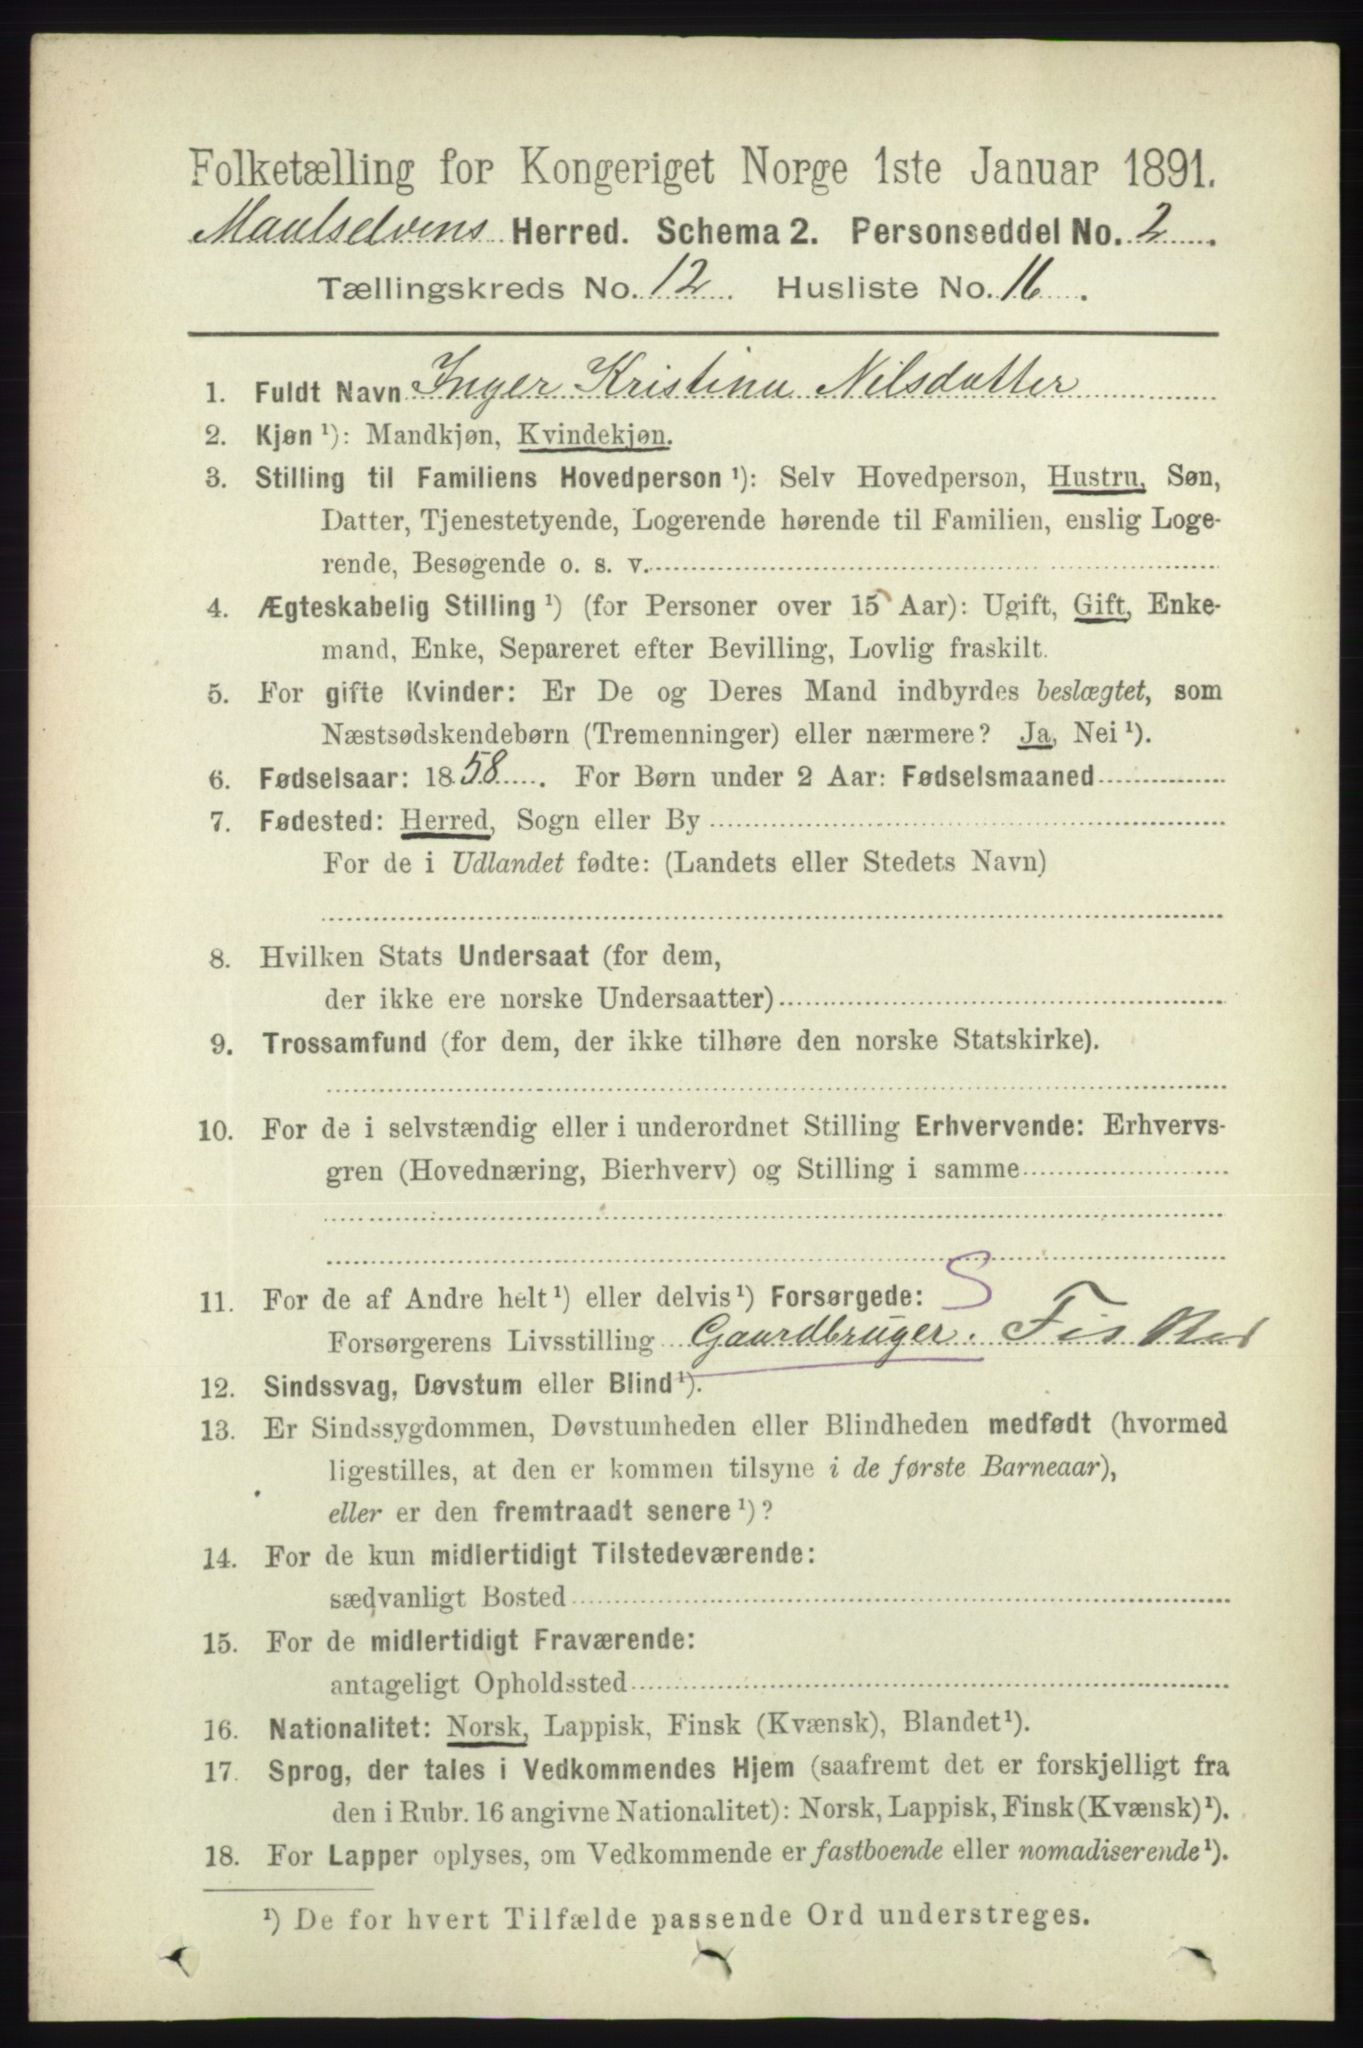 Folketælling for Kongeriget Norge 1ste Januar 1891.
Maalselvens Herred. Schema 2. Personseddel No. 2.
Tællingskreds No. 12. Husliste No. 16.
1. Fuldt Navn Inger Kristina Nilsdatter
2. Kjøn ¹): Mandkjøn, Kvindekjøn.
3. Stilling til Familiens Hovedperson ¹): Selv Hovedperson, Hustru, Søn,
Datter, Tjenestetyende, Logerende hørende til Familien, enslig Loge-
rende, Besøgende o. s. v.
4. Ægteskabelig Stilling ¹) (for Personer over 15 Aar): Ugift, Gift, Enke-
mand, Enke, Separeret efter Bevilling, Lovlig fraskilt.
5. For gifte Kvinder: Er De og Deres Mand indbyrdes beslægtet, som
Næstsødskendebørn (Tremenninger) eller nærmere? Ja, Nei ¹).
6. Fødselsaar: 1858. For Børn under 2 Aar: Fødselsmaaned
7. Fødested: Herred, Sogn eller By
For de i Udlandet fødte: (Landets eller Stedets Navn)
8. Hvilken Stats Undersaat (for dem,
der ikke ere norske Undersaatter)
9. Trossamfund (for dem, der ikke tilhøre den norske Statskirke).
10. For de i selvstændig eller i underordnet Stilling Erhvervende: Erhvervs-
gren (Hovednæring, Bierhverv) og Stilling i samme
11. For de af Andre helt ¹) eller delvis ¹) Forsørgede: S
Forsørgerens Livsstilling Gaardbruger. Fisker
12. Sindssvag, Døvstum eller Blind ¹).
13. Er Sindssygdommen, Døvstumheden eller Blindheden medfødt (hvormed
ligestilles, at den er kommen tilsyne i de første Barneaar),
eller er den fremtraadt senere ¹)?
14. For de kun midlertidigt Tilstedeværende:
sædvanligt Bosted
15. For de midlertidigt Fraværende:
antageligt Opholdssted
16. Nationalitet: Norsk, Lappisk, Finsk (Kvænsk), Blandet ¹).
17. Sprog, der tales i Vedkommendes Hjem (saafremt det er forskjelligt fra
den i Rubr. 16 angivne Nationalitet): Norsk, Lappisk, Finsk (Kvænsk) ¹).
18. For Lapper oplyses, om Vedkommende er fastboende eller nomadiserende ¹).
¹) De for hvert Tilfælde passende Ord understreges.